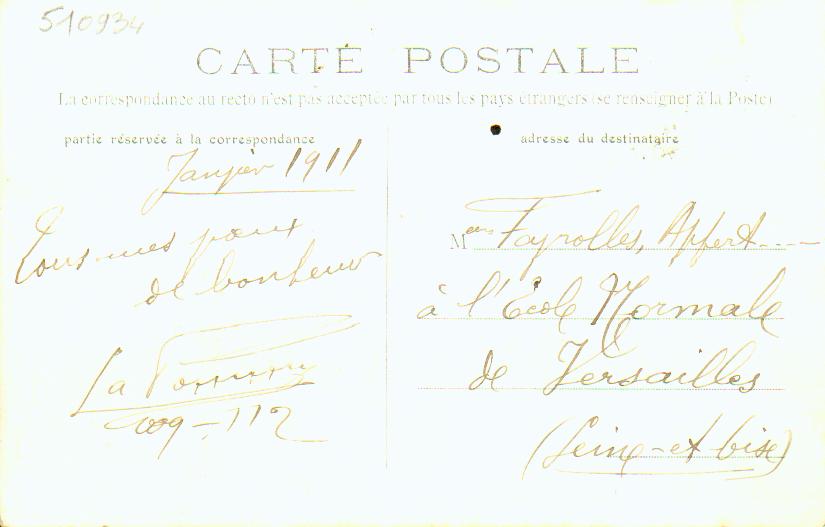 510934
CARTE POSTALE
La correspondance au recto n'est pas acceptée par tous les pays étrangers (se renseigner à la Poste)
partie réservée à la correspondance
adresse du destinataire
Janvier 1911
Tous mes vœux
de bonheur
La
109-112
Mmes Fayrolles, Appert----
à l'École Normale
de Versailles
(Seine-et-Oise)